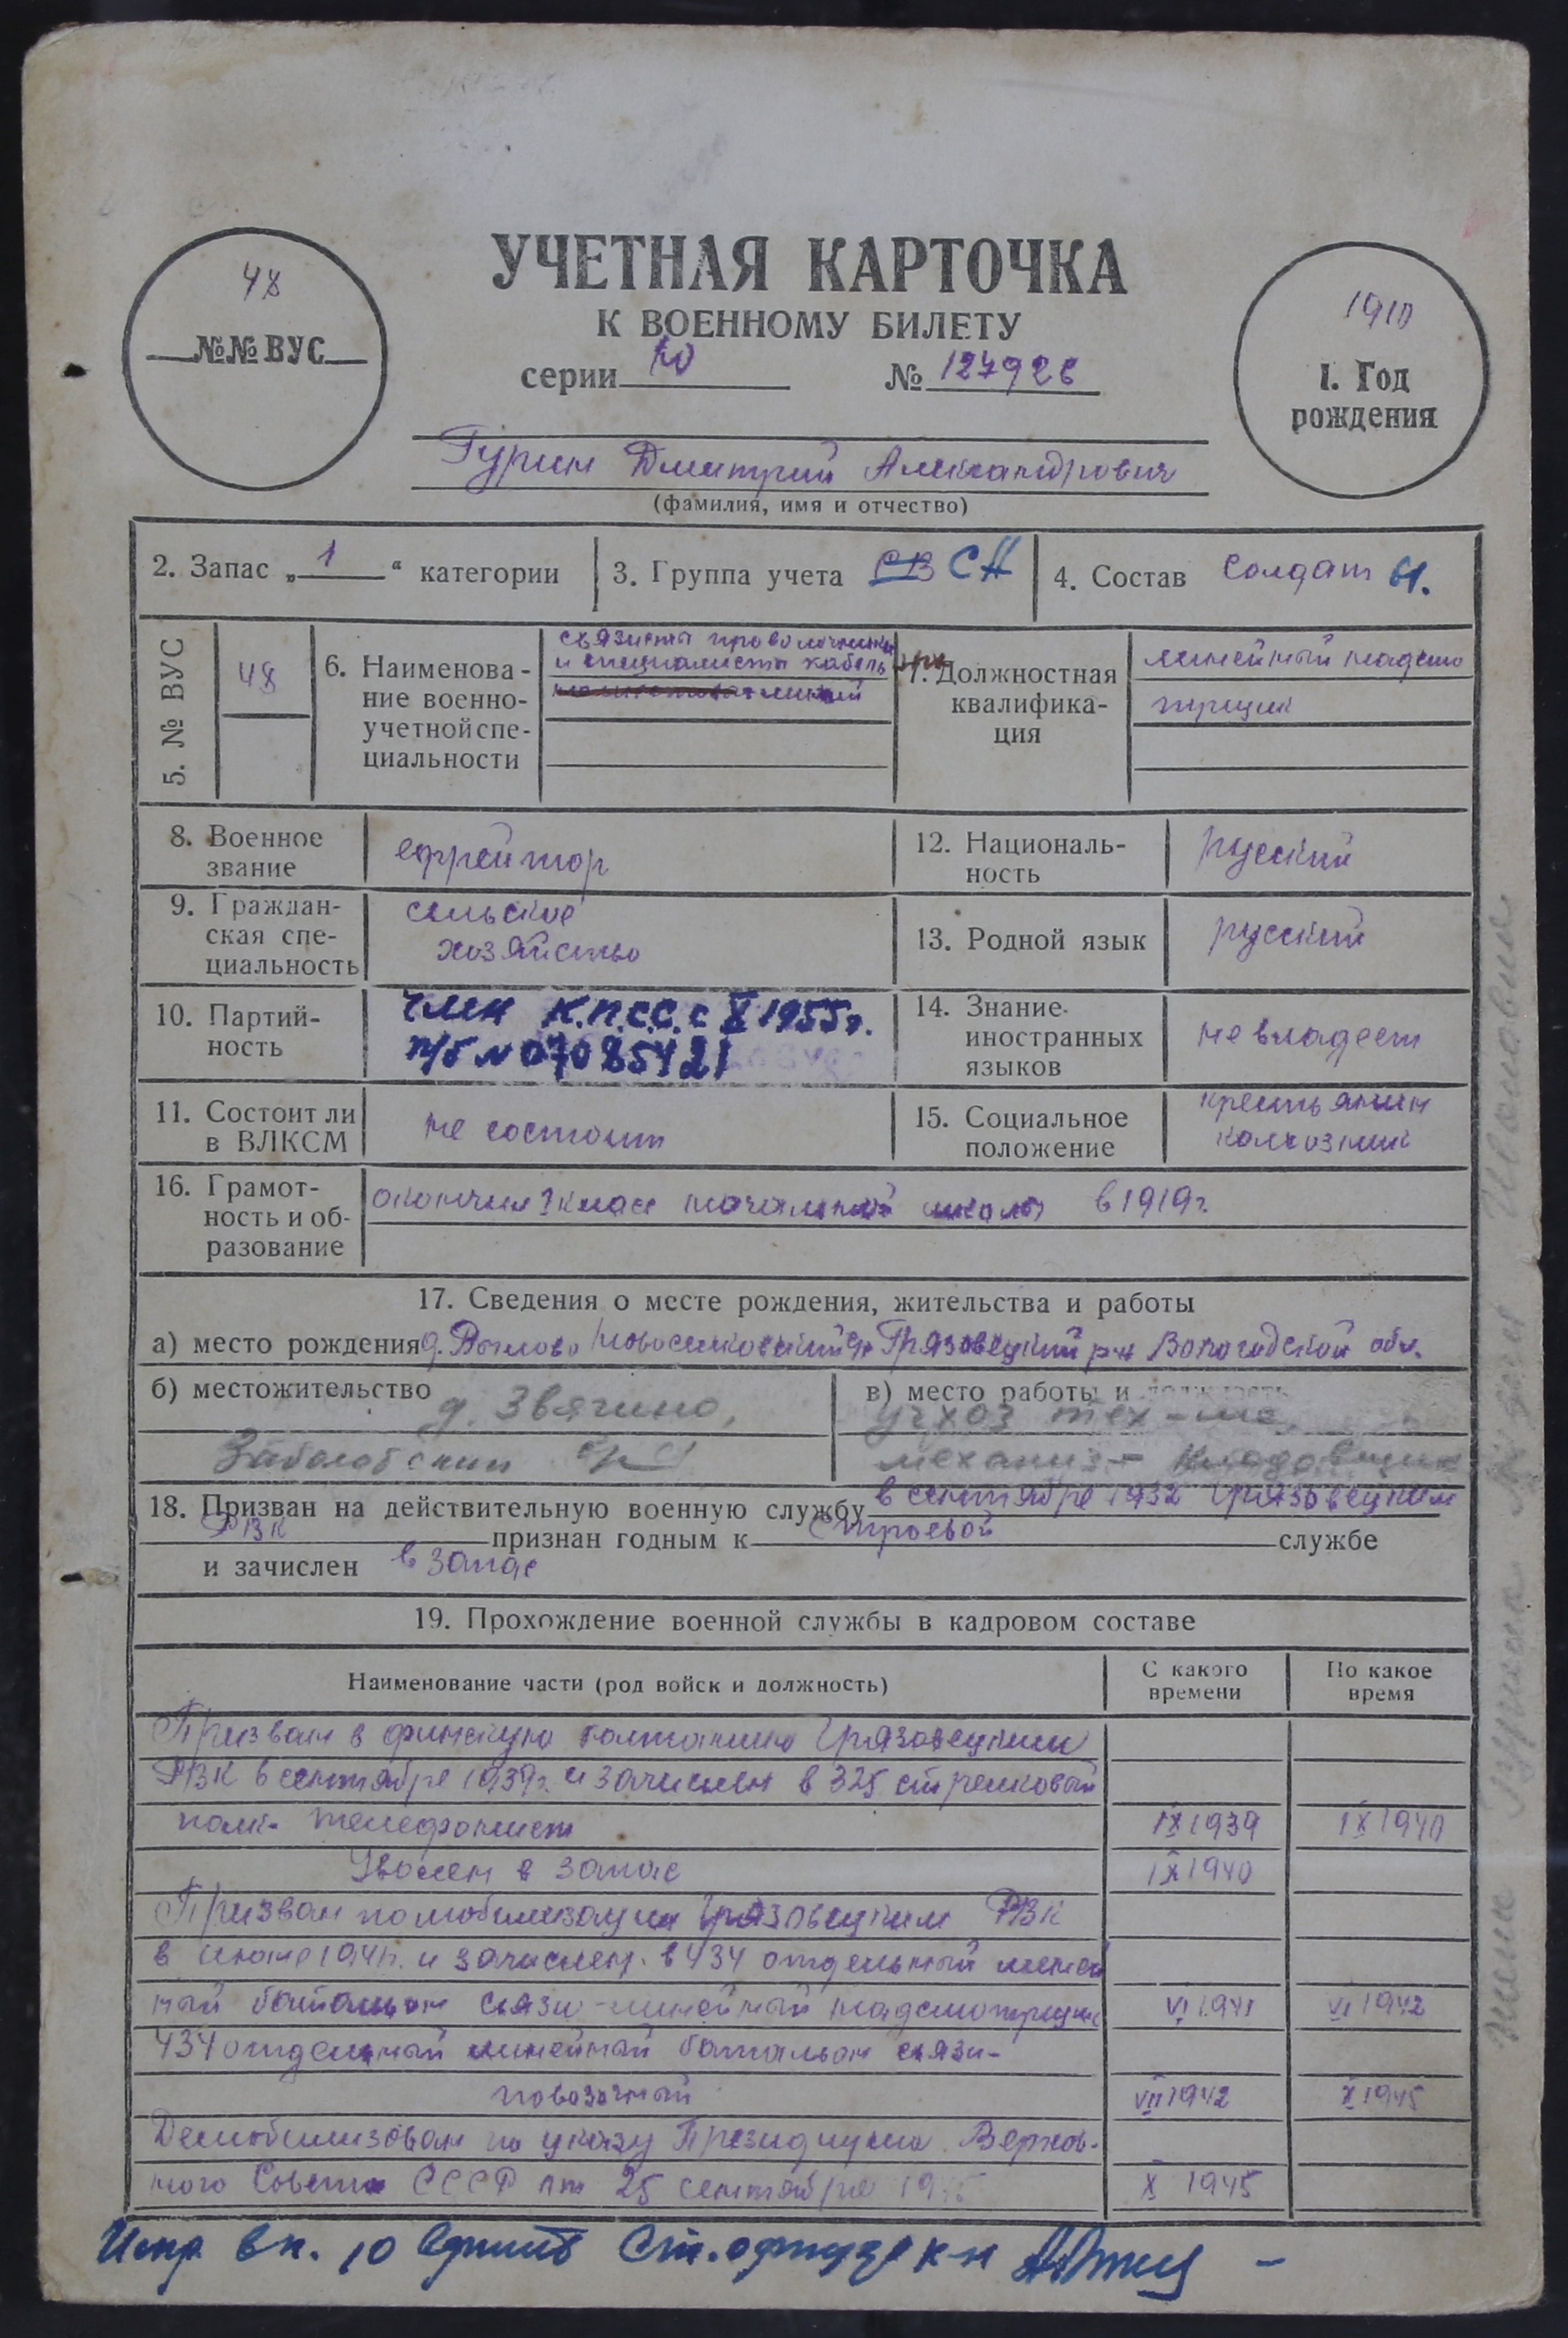 48
№№ ВУС
УЧЕТНАЯ КАРТОЧКА
К ВОЕННОМУ БИЛЕТУ
серии Ю № 127926
1910
1. Год
рождения
Гурин Дмитрий Александрович
(фамилия, имя и отчество)
2. Запас „1“ категории
3. Группа учета СВ СА
4. Состав солдат
5. № ВУС
48
6. Наименова-
ние военно-
учетной спе-
циальности
связисты проволочники
и специалисты кабель
7. Должностная
квалифика-
ция
линейный надсмо
трщик
8. Военное
звание
ефрейтор
12. Националь-
ность
русский
9. Граждан-
ская спе-
циальность
сельское
хозяйство
13. Родной язык
русский
10. Партий-
ность
член К.П.С.С. с X 1955 г.
п/б № 07085421
14. Знание
иностранных
языков
не владеет
11. Состоит ли
в ВЛКСМ
не состоит
15. Социальное
положение
крестьянин
колхозник
16. Грамот-
ность и об-
разование
окончил класс начальной школы в 1919 г.
17. Сведения о месте рождения, жительства и работы
а) место рождения д. Грязовецкий р-н Вологодской обл.
б) местожительство
д. Звягино,
в) место работы и должность
учхоз тех-ма,
механиз- кладовщик
18. Призван на действительную военную службу в сентябре 1932 Грязовецким
РВК признан годным к строевой службе
и зачислен в запас
19. Прохождение военной службы в кадровом составе
Наименование части (род войск и должность)
С какого
времени
По какое
время
Призван в финскую Грязовецким
РВК в сентябре 1939 г. и зачислен в 325 стрелковый
полк- телефонист IX 1939 IX 1940
Уволен в запас IX 1940
Призван по мобилизации Грязовецким РВК
в июне 1941 г. и зачислен в 434 отдельный линей
ный батальон связи - линейный надсмотрщик VI 1941 VI 1942
434 отдельный линейный батальон связи-
повозочный VII 1942 X 1945
Демобилизован по указу Президиума Верхов-
ного Совета СССР от 25 сентября 1945 X 1945
Испр. в п. 10 Ст.
жена Гурина